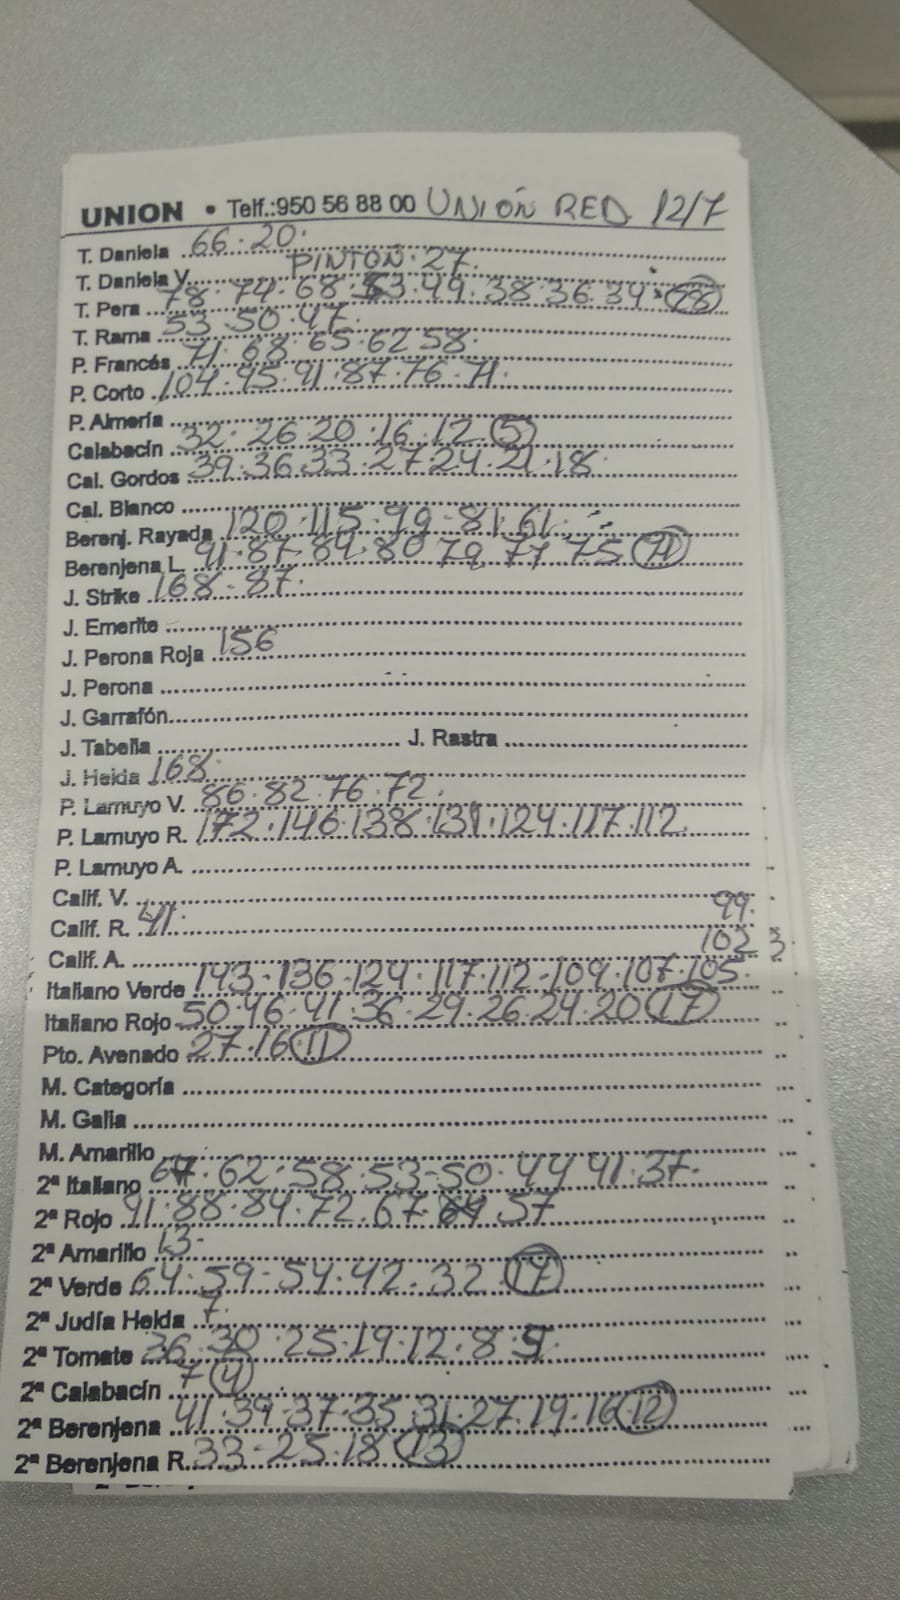 UNION • Telf.:950 56 88 00 UNIÓN RED 12/7
T. Daniela 66·20·
T. Daniela V. PINTON·27
T. Pera 78·74·68·53·49·38·36·34·(28)
T. Rama 53·50·47·
P. Francés 71·68·65·62 58·
P. Corto 104·95·91·87·76·71·
P. Almería
Calabacín 32·26·20·16·12·(5)
Cal. Gordos 39·36·33·27·24·21·18·
Cal. Blanco
Berenj. Rayada 120·115·99-81·61·
Berenjena L. 91·87·84·80 79, 77 75 (71)
J. Strike 168-87·
J. Emerite
J. Perona Roja 156
J. Perona
J. Garrafón
J. Tabella J. Rastra
J. Helda 168·
P. Lamuyo V. 86·82·76·72·
P. Lamuyo R. 172·146·138·131·124·117·112
P. Lamuyo A.
Calif. V. 99·
Calif. R. 41· 102
Calif. A.
Italiano Verde 143·136·124·117·112-109·107·105·
Italiano Rojo 50·46·41·36·29·26·24·20 (17)
Pto. Avenado 27·16 (11)
M. Categoría
M. Galia
M. Amarillo
2ª Italiano 67·62·58·53-50·44 41·37·
2ª Rojo 91·88·84·72·67· 57
2ª Amarillo 13-
2ª Verde 64·59-54·42·32 (17)
2ª Judía Helda 7·
2ª Tomate 36·30·25·19·12·8·
2ª Calabacín 7 (4)
2ª Berenjena 41·39·37·35 31·27·19·16 (12)
2ª Berenjena R. 33-25·18 (13)